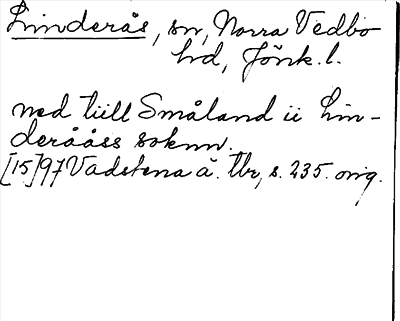 Linderås, sn, Norra Vedbo
hd, Jönk. l.
ned tiill Småland ii Lin-
derååss soknn.
[15]97 Vadstena ä. Tbr, s. 235. orig.